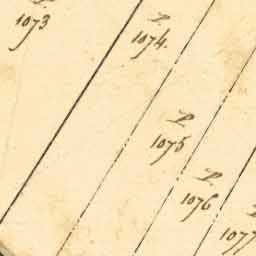 P.
1073
P.
1074.
P.
1075
P.
1076
P.
1077